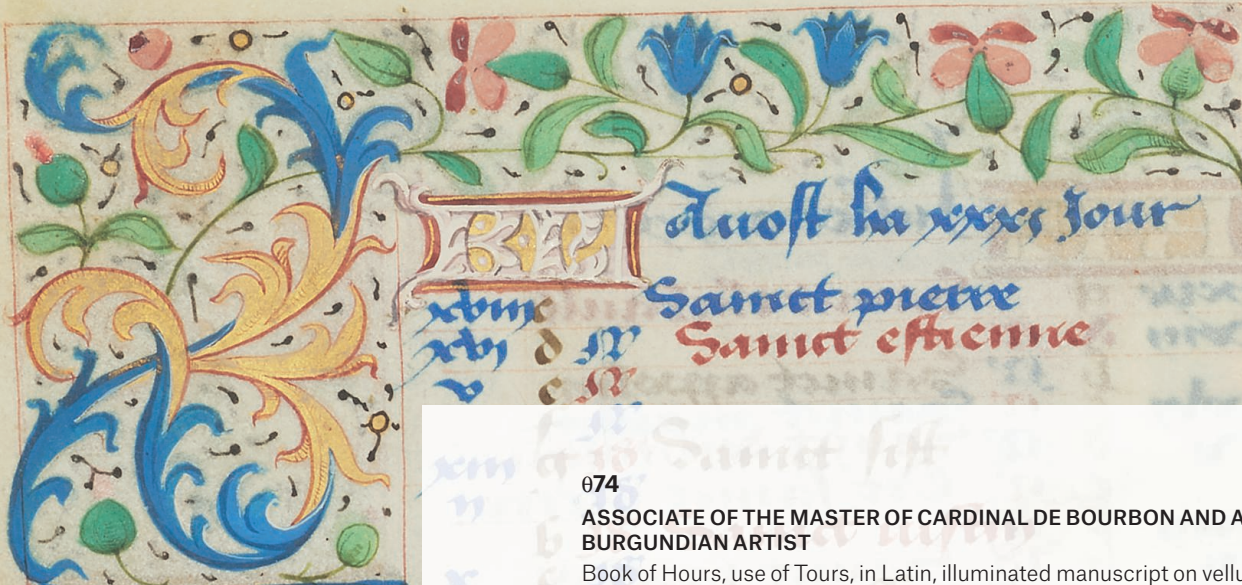 Auost ha xxxj Jour
xviij c Sanct pierre
xvj d N Sanct estienne
v e N
Sanct sixt
xiii
ii
b
x
θ74
ASSOCIATE OF THE MASTER OF CARDINAL DE BOURBON AND A
BURGUNDIAN ARTIST
Book of Hours, use of Tours, in Latin, illuminated manuscript on vellu